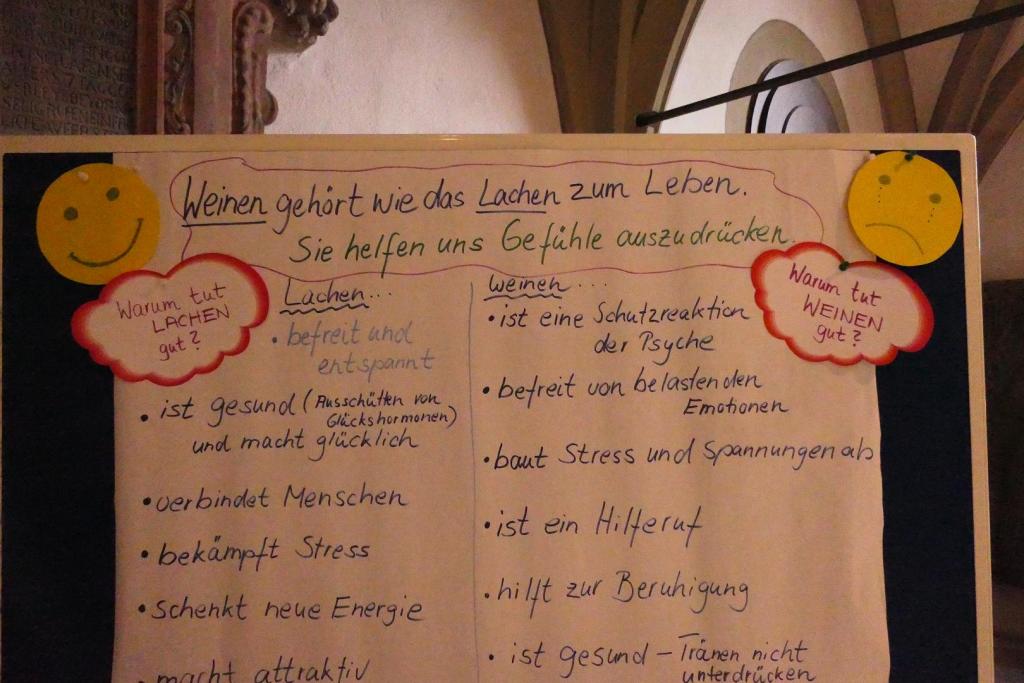 Weinen gehört wie das Lachen zum Leben.
Sie helfen uns Gefühle auszudrücken.
Warum tut
LACHEN
gut?
Lachen...
• befreit und
entspannt
• ist gesund (Ausschütten von
Glückshormonen)
und macht glücklich
• verbindet Menschen
• bekämpft Stress
• schenkt neue Energie
• macht attraktiv
Warum tut
WEINEN
gut?
weinen...
• ist eine Schutzreaktion
der Psyche
• befreit von belastenden
Emotionen
• baut Stress und Spannungen ab
• ist ein Hilferuf
• hilft zur Beruhigung
• ist gesund – Tränen nicht
unterdrücken